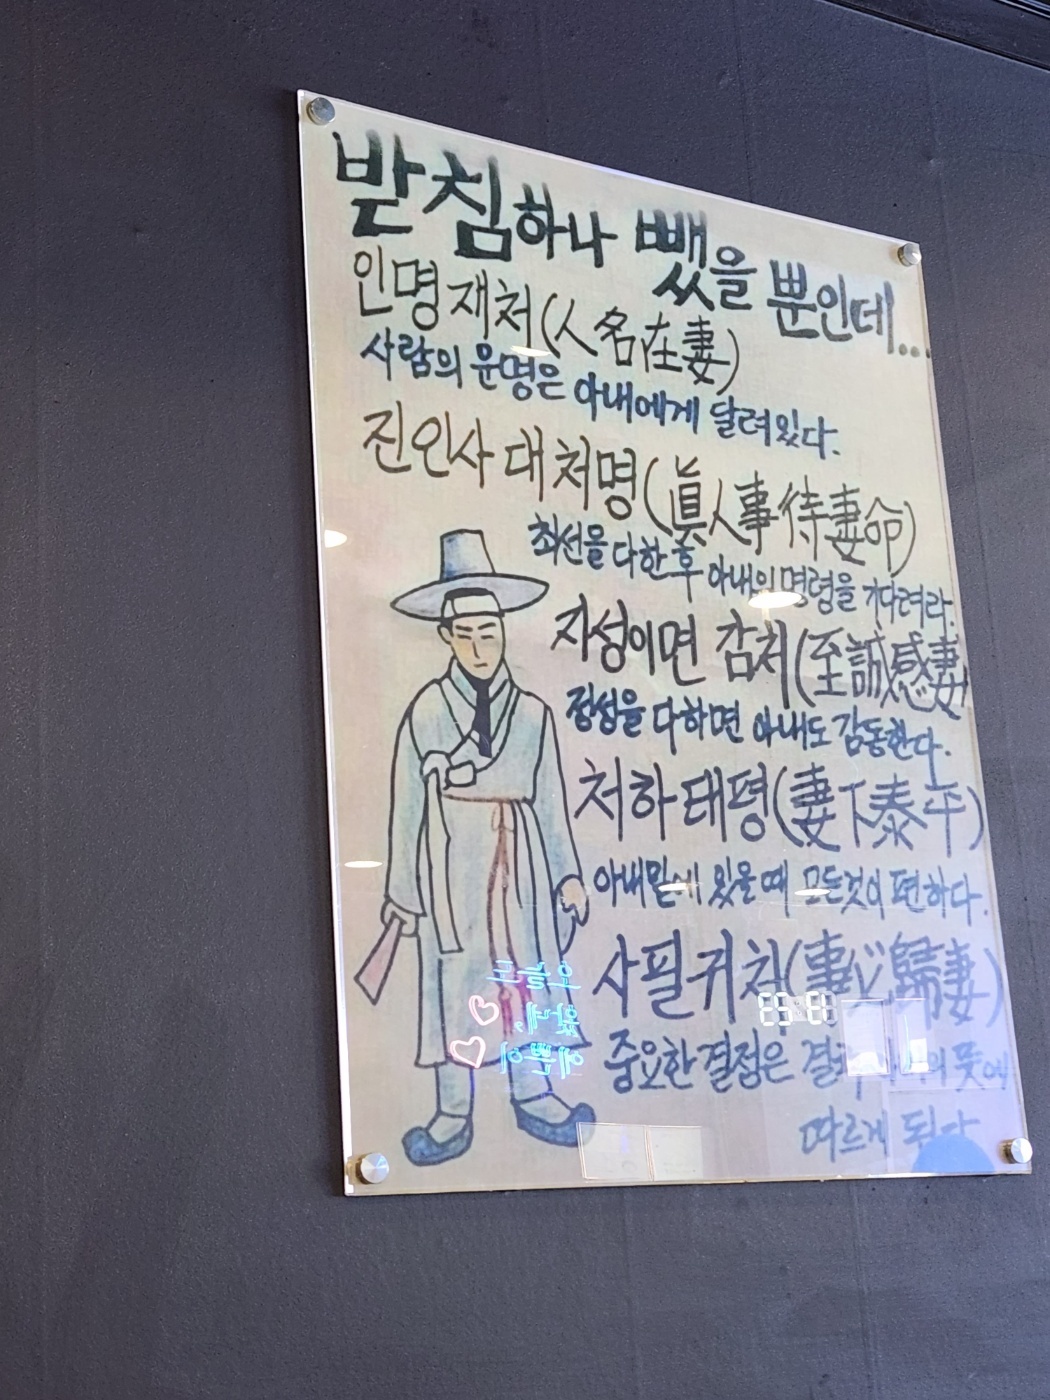 받침하나 뺐을 뿐인데...
인명재처(人名在妻)
사람의 운명은 아내에게 달려있다.
진인사대처명(眞人事待妻命)
최선을 다한 후 아내의 명령을 기다려라.
지성이면 감처(至誠感妻)
정성을 다하면 아내도 감동한다.
처하태평(妻下泰平)
아내밑에 있을때 모든것이 편하다.
사필귀처(事必歸妻)
중요한 결정은 결국 의 뜻에
따르게 된다
오늘도
왔네,
예쁜이